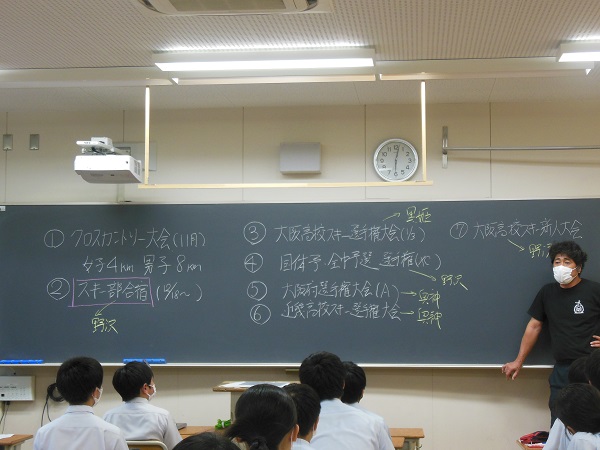 ① クロスカントリー大会(11月)
女子4km 男子8km
② スキー部合宿(12/18~)
野沢
③ 大阪高校スキー選手権大会(1/5)
黒姫
④ 国体予・全中予選 選手権(XC)
野沢
⑤ 大阪府選手権大会(A)
奥神
⑥ 近畿高校スキー選手権大会
奥神
⑦ 大阪高校スキー新人大会
野沢